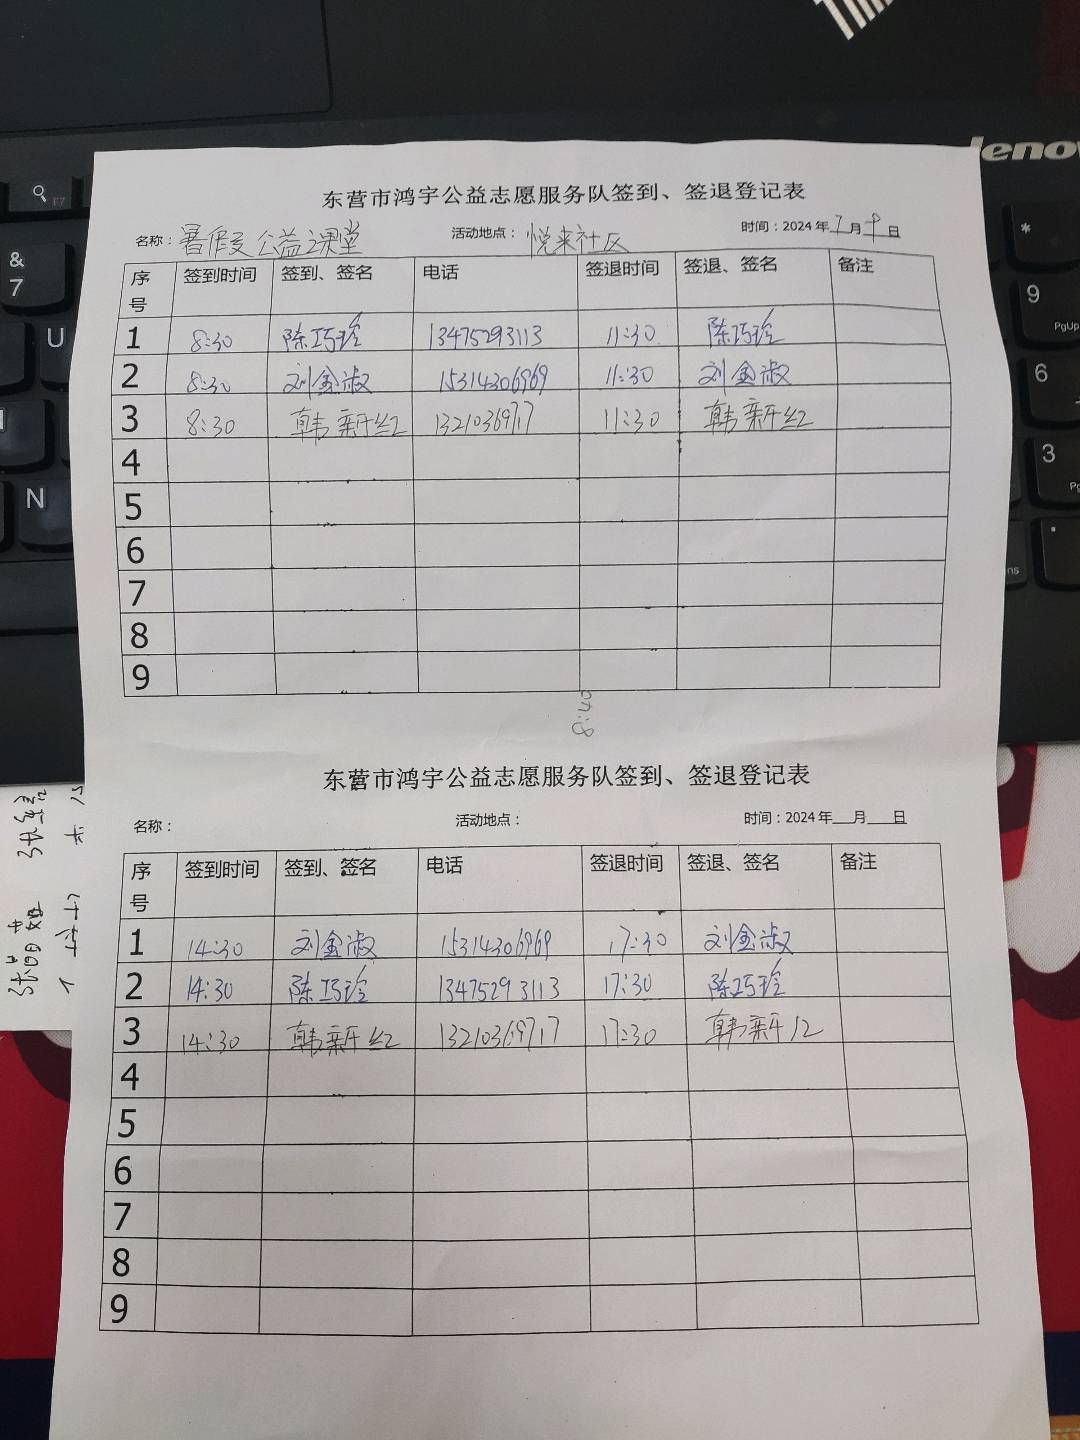 lenovo
& 7
U
N
F7
*
9 PgUp
6
3
东营市鸿宇公益志愿服务队签到、签退登记表
名称：暑假公益课堂 活动地点：悦来社区 时间：2024年7月9日
序号 签到时间 签到、签名 电话 签退时间 签退、签名 备注
1 8:30 陈巧玲 13475293113 11:30 陈巧玲
2 8:30 刘金淑 15314306969 11:30 刘金淑
3 8:30 韩新红 13210369717 11:30 韩新红
4
5
6
7
8
9
东营市鸿宇公益志愿服务队签到、签退登记表
名称： 活动地点： 时间：2024年___月___日
序号 签到时间 签到、签名 电话 签退时间 签退、签名 备注
1 14:30 刘金淑 15314306969 17:30 刘金淑
2 14:30 陈巧玲 13475293113 17:30 陈巧玲
3 14:30 韩新红 13210369717 17:30 韩新红
4
5
6
7
8
9